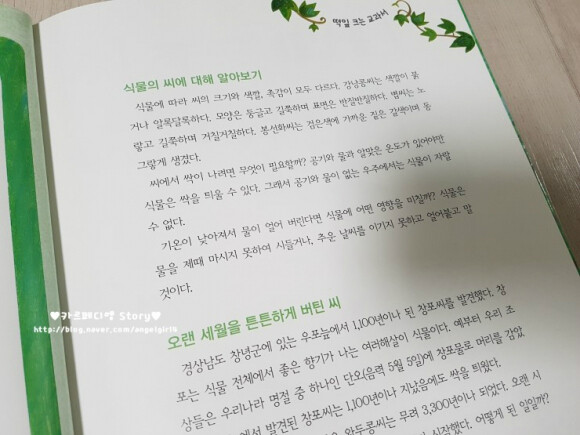 떡잎 크는 교과서
식물의 씨에 대해 알아보기
식물에 따라 씨의 크기와 색깔, 촉감이 모두 다르다. 강낭콩씨는 색깔이 붉
거나 알록달록하다. 모양은 둥글고 길쭉하며 표면은 반질반질하다. 볍씨는 노
랗고 길쭉하며 거칠거칠하다. 봉선화씨는 검은색에 가까운 짙은 갈색이며 동
그랗게 생겼다.
씨에서 싹이 나려면 무엇이 필요할까? 공기와 물과 알맞은 온도가 있어야만
식물은 싹을 틔울 수 있다. 그래서 공기와 물이 없는 우주에서는 식물이 자랄
수 없다.
기온이 낮아져서 물이 얼어 버린다면 식물에 어떤 영향을 미칠까? 식물은
물을 제때 마시지 못하여 시들거나, 추운 날씨를 이기지 못하고 얼어붙고 말
것이다.
♥카르페디엠 Story♥
http://blog.naver.com/angelgirl4
오랜 세월을 튼튼하게 버틴 씨
경상남도 창녕군에 있는 우포늪에서 1,100년이나 된 창포씨를 발견했다. 창
포는 식물 전체에서 좋은 향기가 나는 여러해살이 식물이다. 예부터 우리 조
상들은 우리나라 명절 중 하나인 단오(음력 5월 5일)에 창포물로 머리를 감았
에서 발견된 창포씨는 1,100년이나 지났음에도 싹을 틔웠다.
완두콩씨는 무려 3,300년이나 되었다. 오랜 시
시작했다. 어떻게 된 일일까?